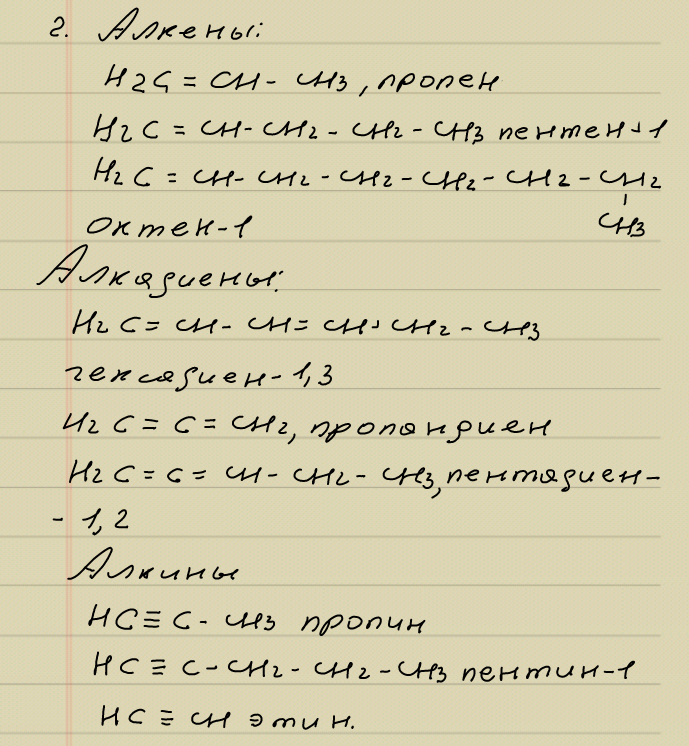 2. Алкены:
H2C = CH - CH3, пропен
H2C = CH - CH2 - CH2 - CH3 пентен-1
H2C = CH - CH2 - CH2 - CH2 - CH2 - CH2
|
октен-1 CH3
Алкадиены:
H2C = CH - CH = CH - CH2 - CH3
гексадиен-1,3
H2C = C = CH2, пропандиен
H2C = C = CH - CH2 - CH3, пентадиен-
- 1, 2
Алкины
HC ≡ C - CH3 пропин
HC ≡ C - CH2 - CH2 - CH3 пентин-1
HC ≡ CH этин.